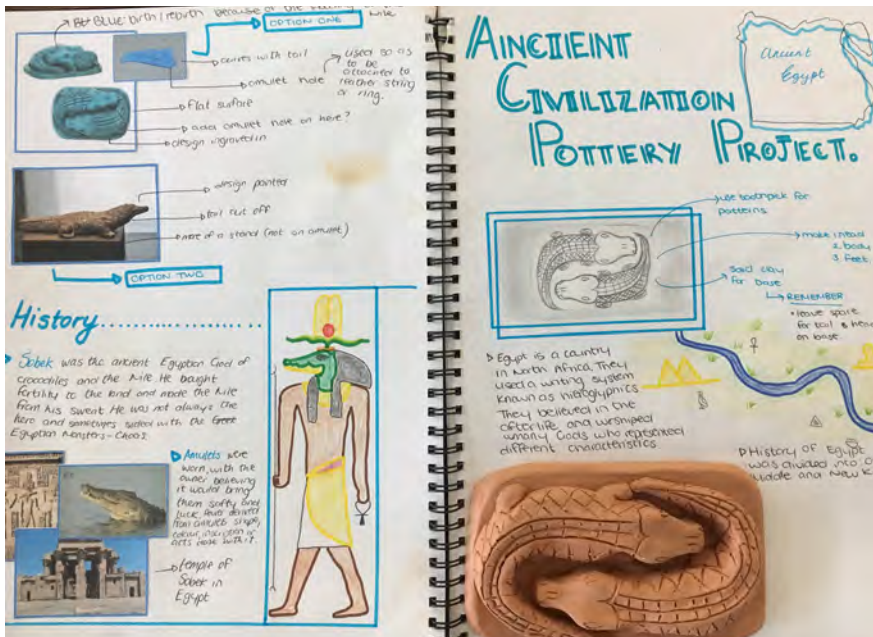 Blue: birth / rebirth because of the
Nile
OPTION ONE
curves with tail
amulet hole
used so as
to be
attached to
leather string
or ring.
flat surface
add amulet hole on here?
design ingraved in
design pointer
tail cut off
more of a stand (not an amulet)
OPTION TWO
History
Sobek was the ancient Egyptian God of
crocodiles and the Nile He bought
fertility to the land and made the Nile
from his sweat He was not always the
hero and sometimes sided with the
Egyptian Monsters - Chaos
Amulets were
worn, with the
owner believing
it would bring
them safty and
luck. Power derived
from amulets shape,
colour, inscription or
acts made with it.
temple of
Sobek in
Egypt
AINCIENT
CIVILIZATION
POTTERY PROJECT.
Ancient
Egypt
use toothpick for
patterns
make
2. body
3. feet
said clay
for base
REMEMBER
• leave space
for tail & head
on base
Egypt is a country
in North Africa They
used a writing system
known as hieroglyphics
They believed in the
afterlife and worshiped
many Gods who represented
different characteristics
History of Egypt
was divided into
middle and New K